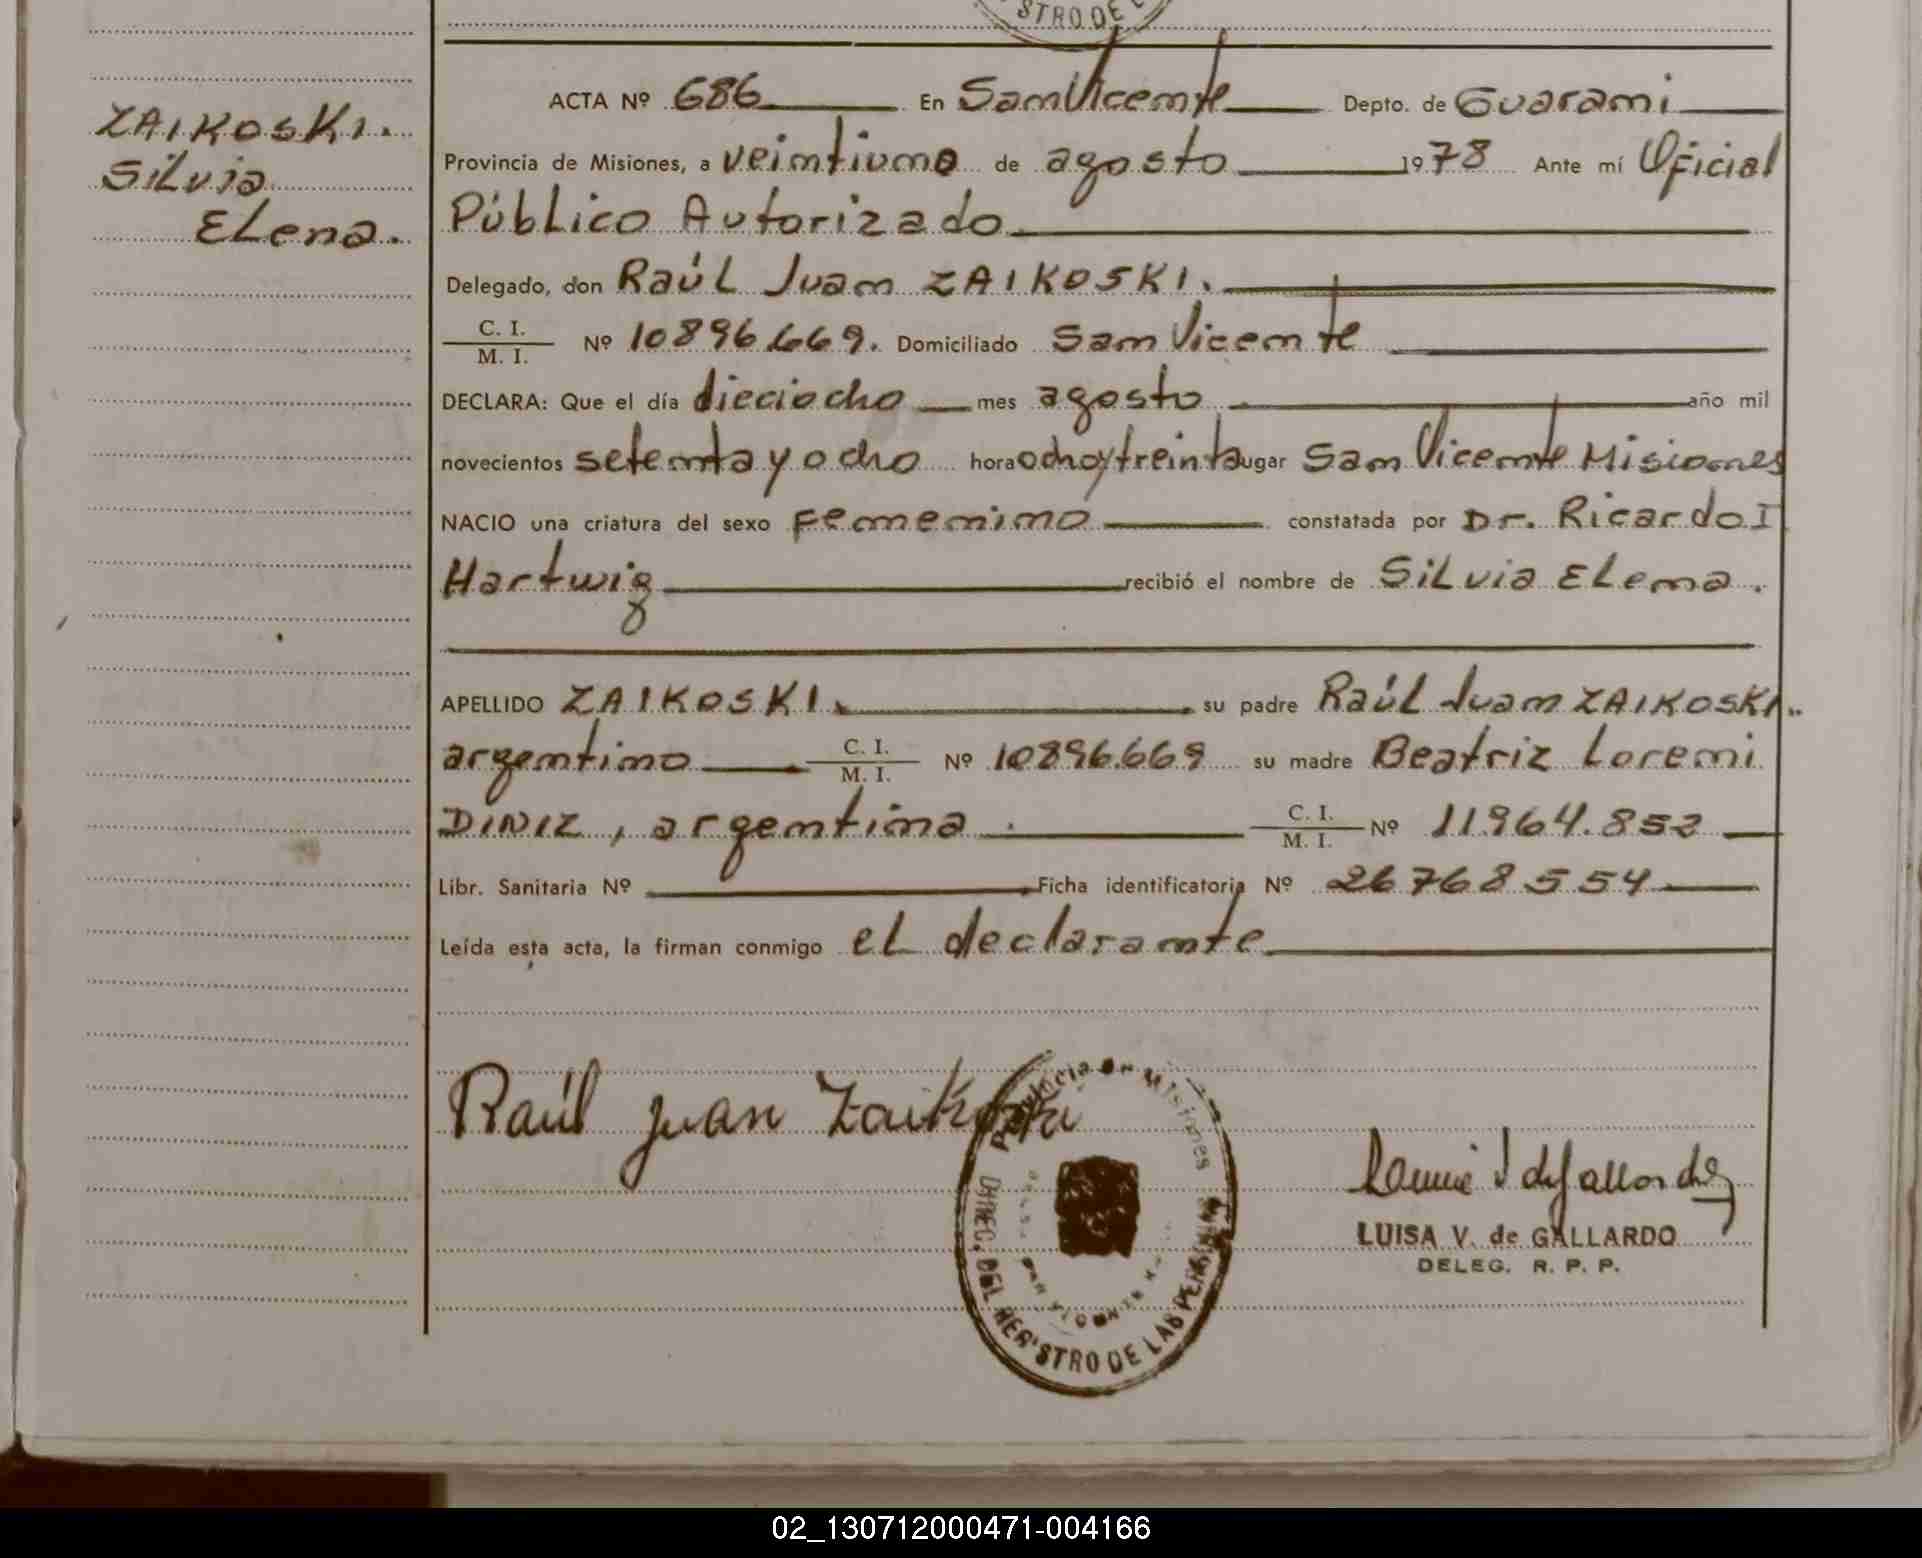 STRO DE L
ACTA Nº 686 En San Vicente Depto. de Guarani
ZAIKOSKI.
Silvia
Elena.
Provincia de Misiones, a veintiuno de agosto 1978 Ante mí Oficial
Público Autorizado
Delegado, don Raúl Juan ZAIKOSKI.
C. I.
M. I. Nº 10896.669. Domiciliado San Vicente
DECLARA: Que el día dieciocho mes agosto año mil
novecientos setenta y ocho hora ocho y treinta lugar San Vicente Misiones
NACIO una criatura del sexo Femenino constatada por Dr. Ricardo I
Hartwig recibió el nombre de Silvia Elena.
APELLIDO ZAIKOSKI. su padre Raúl Juan ZAIKOSKI.
argentino C. I. M. I. Nº 10896.669 su madre Beatriz Loreni
DINIZ, argentina. C. I. M. I. Nº 11.964.852
Libr. Sanitaria Nº Ficha identificatoria Nº 26768554
Leída esta acta, la firman conmigo el declarante
Raúl Juan Zaikoski
Provincia de Misiones
DIREC. DEL REGISTRO DE LAS PERSONAS
LUISA V. de GALLARDO
DELEG. R. P. P.
02_130712000471-004166